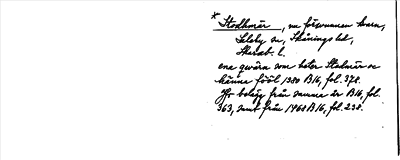 * Stodhmär, nu försvunnen kvarn,
Saleby sn, Skånings hd,
Skarab. l.
ene qwärn som heter Stodmär oc
känne fööl 1380 B16, fol. 378.
Jfr belägg från samme år B16, fol.
363, samt från 1468 B16, fol. 238.